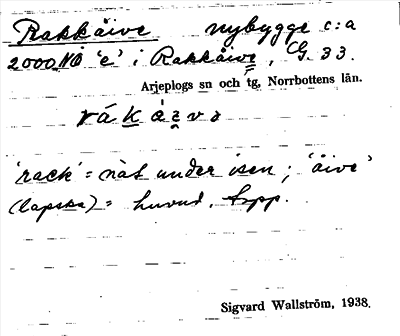 Rakkåive nybygge c:a
2000 NO 'e' i Rakkåive, G. 33.
Arjeplogs sn och tg, Norrbottens län.
'rack' = nät under isen; 'åive'
(lapska) = huvud, topp.
Sigvard Wallström, 1938.